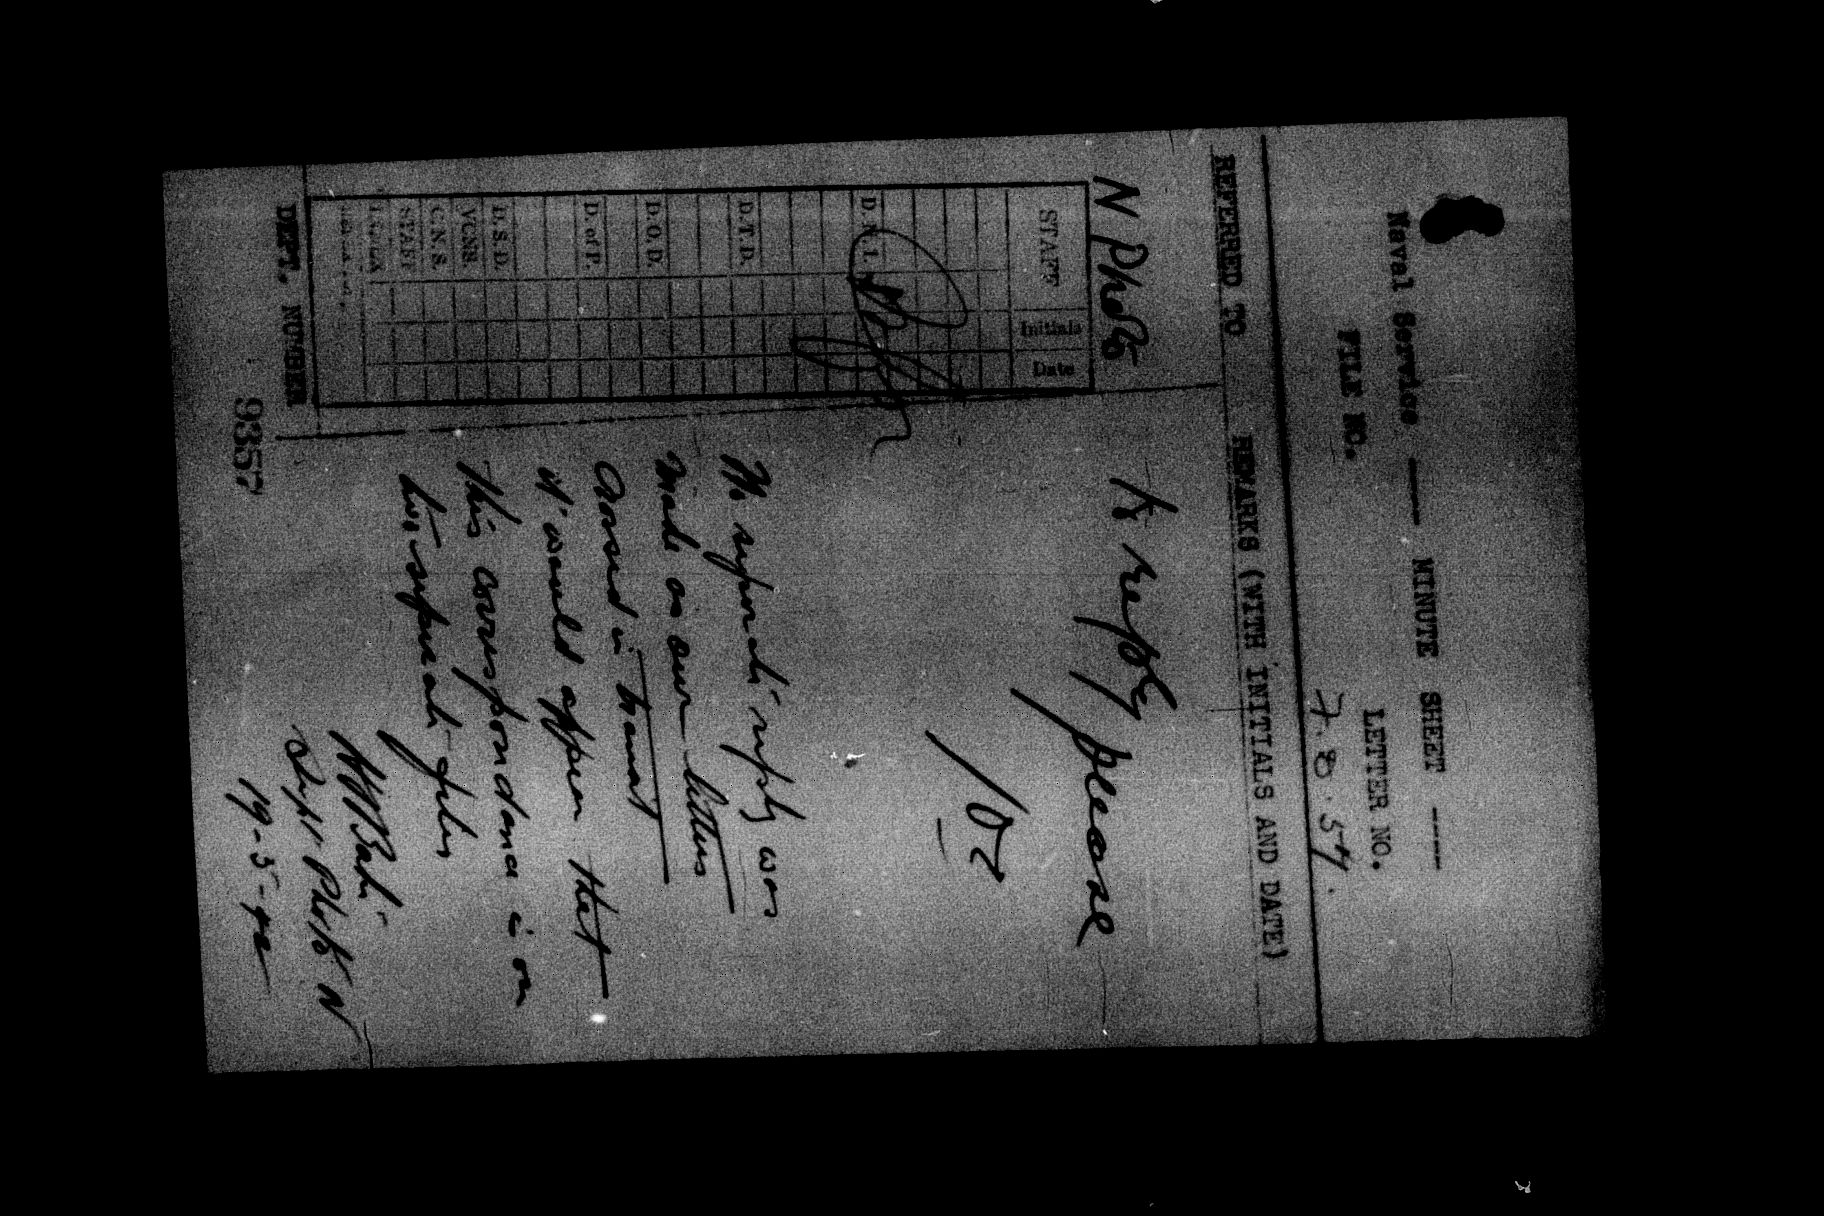 Naval Service ---- MINUTE SHEET ----
FILE NO. LETTER NO.
7.8.54.
REFERRED TO REMARKS (WITH INITIALS AND DATE)
N Photo
To reply please
STAFF Initials Date
D.N.I.
D.T.D.
D.O.D.
D. of P.
D.S.D.
VCNS.
C.N.S.
STAFF
No separate reply was
made as our letters
crossed in transit
it would appear that
this correspondence is on
his separate file
Supt Photo N
19-5-
DEPT. NUMBER
9357